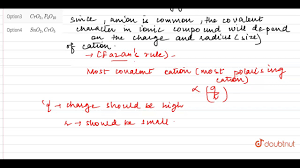 Option3 CrO₅, P₄O₁₀
Option4 SnO₂, CrO₃
since, anion is common, the covalent
character in ionic compound will depend
on the charge and radius (size)
of cation.
→ (Fazan's rule) -
Most covalent cation (most polarising
cation)
∝ (q/r)
q → charge should be high
r → should be small
doubtnut